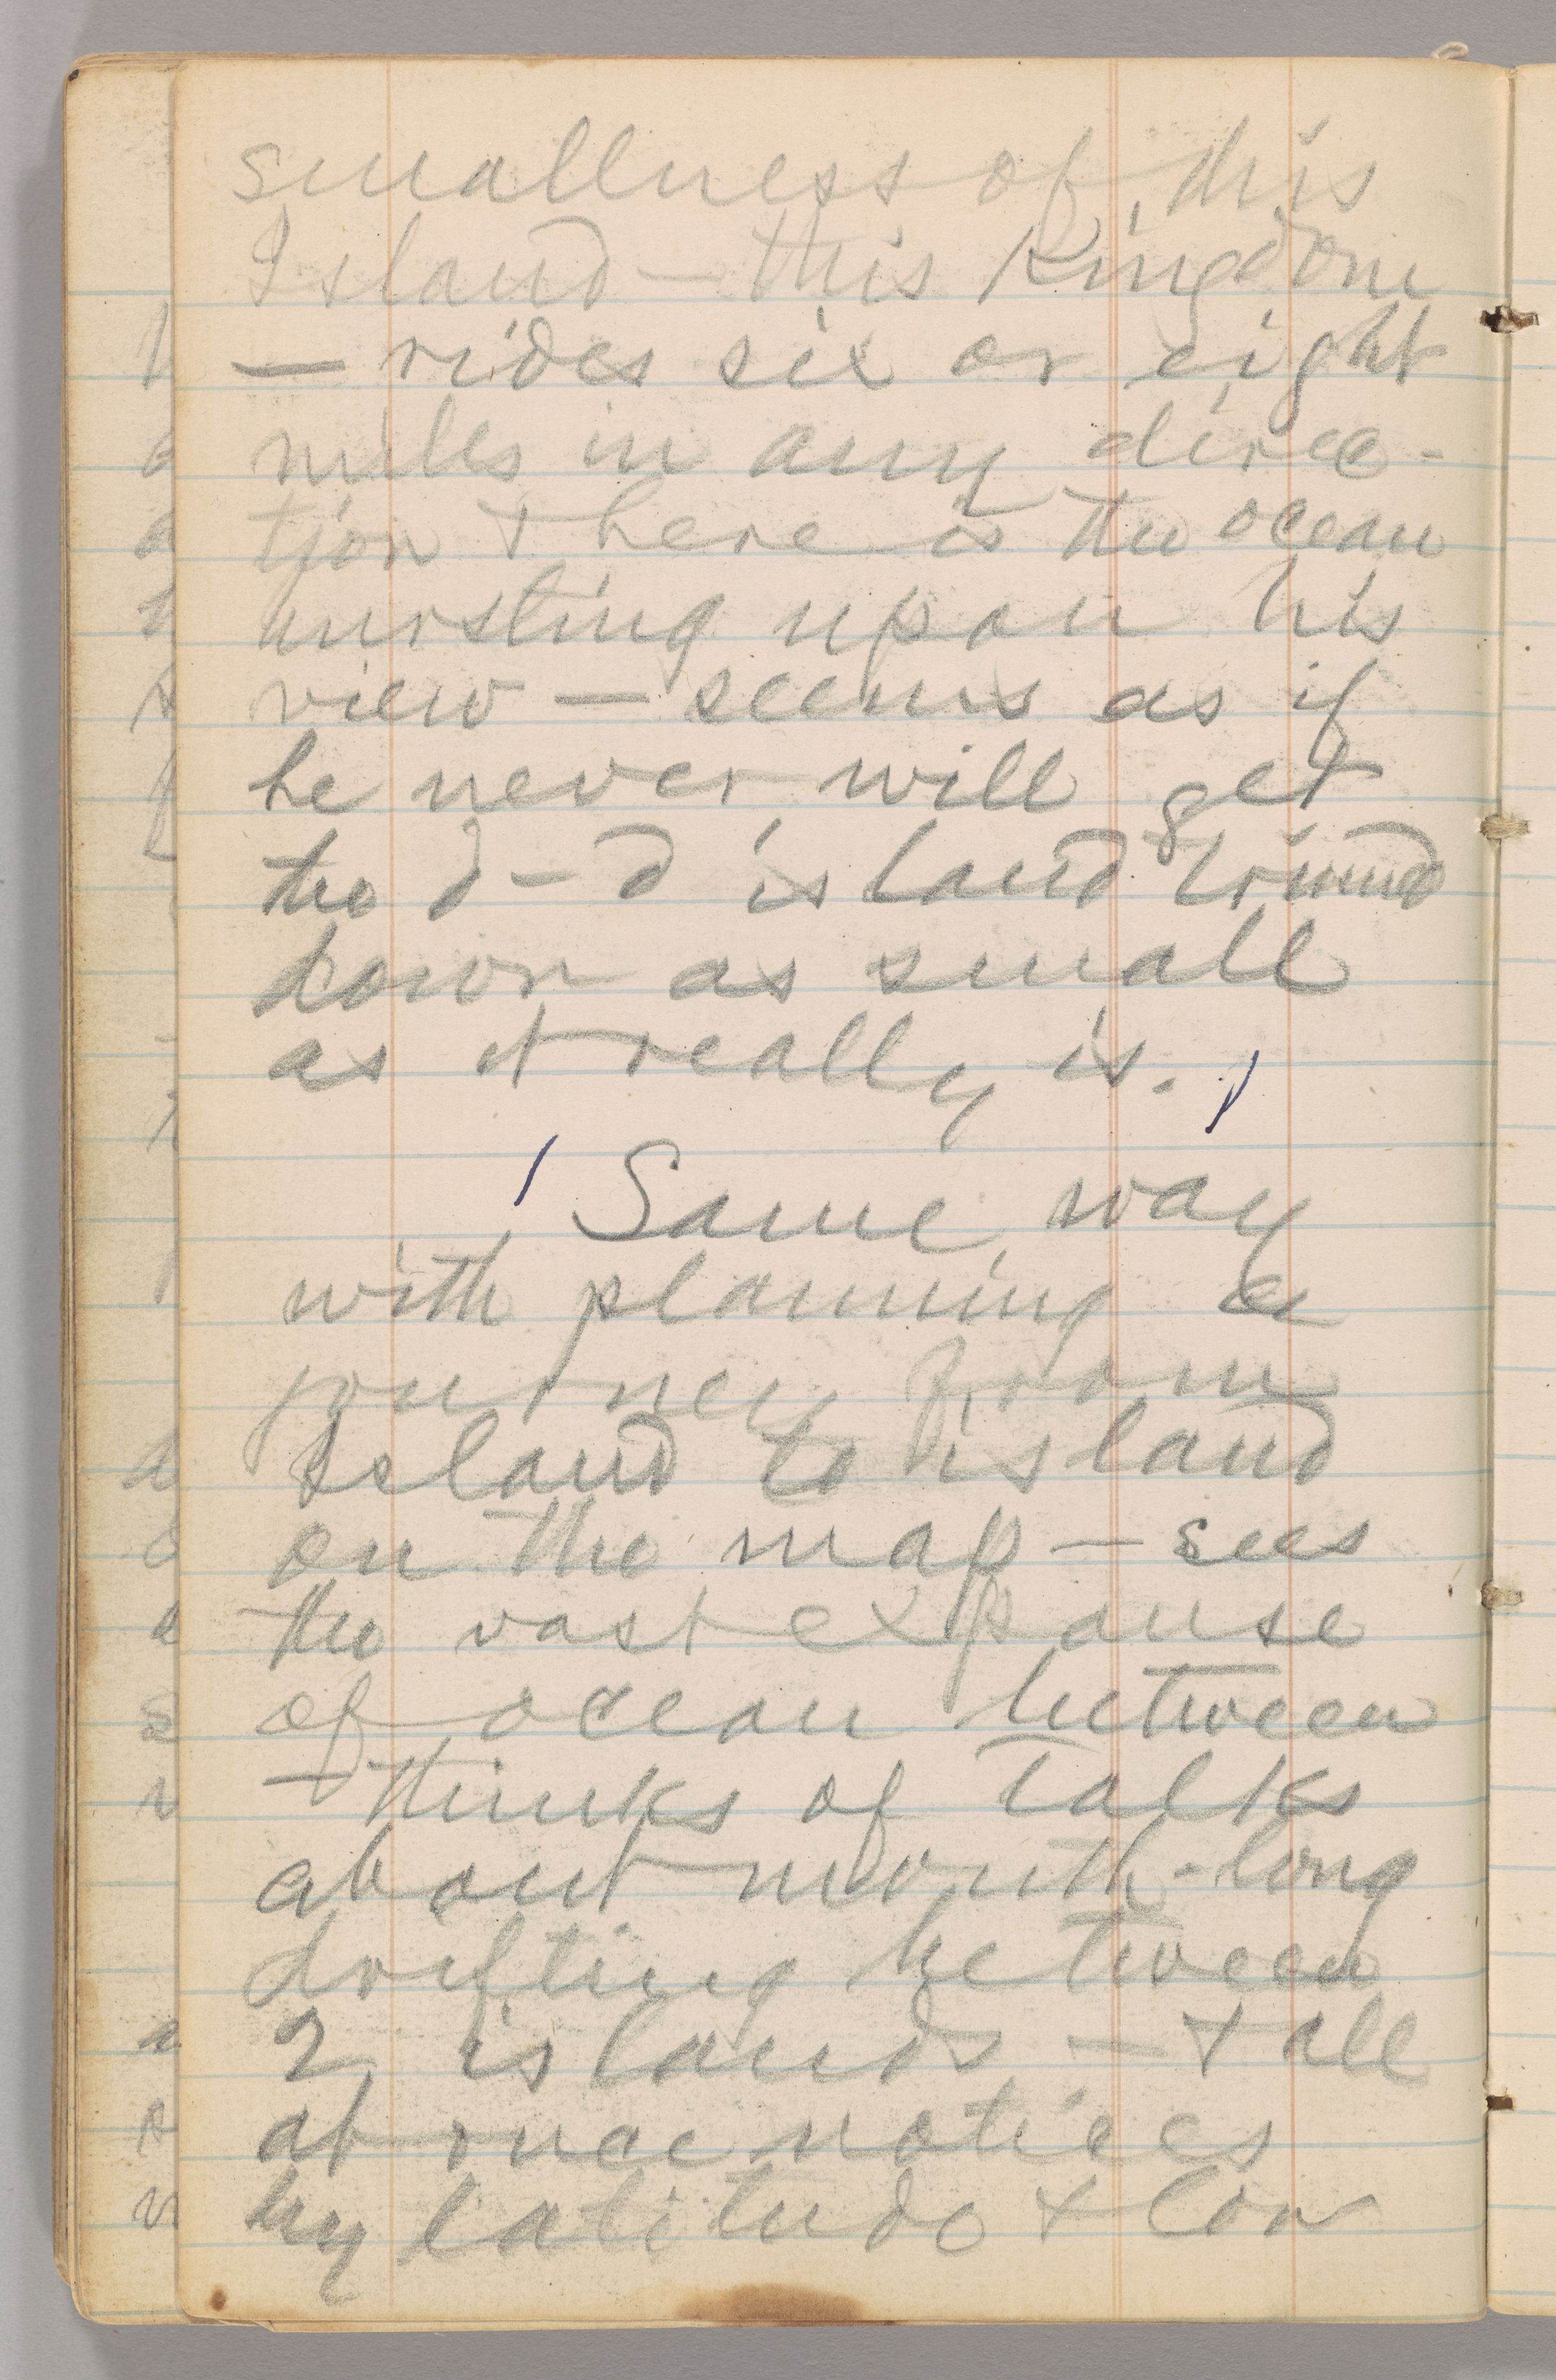 smallness of this
Island — this Kingdom
— rides six or eight
miles in any direc-
tion & here is the ocean
bursting upon his
view — seems as if
he never will get
the d—d island trimmd
down as small
as it really is.
Same way
with planning a
journey from
Island to island
on the map — sees
the vast expanse
of ocean between
— thinks of talks
about month-long
drifting between
2 islands — & all
at once notices
by latitude & lon